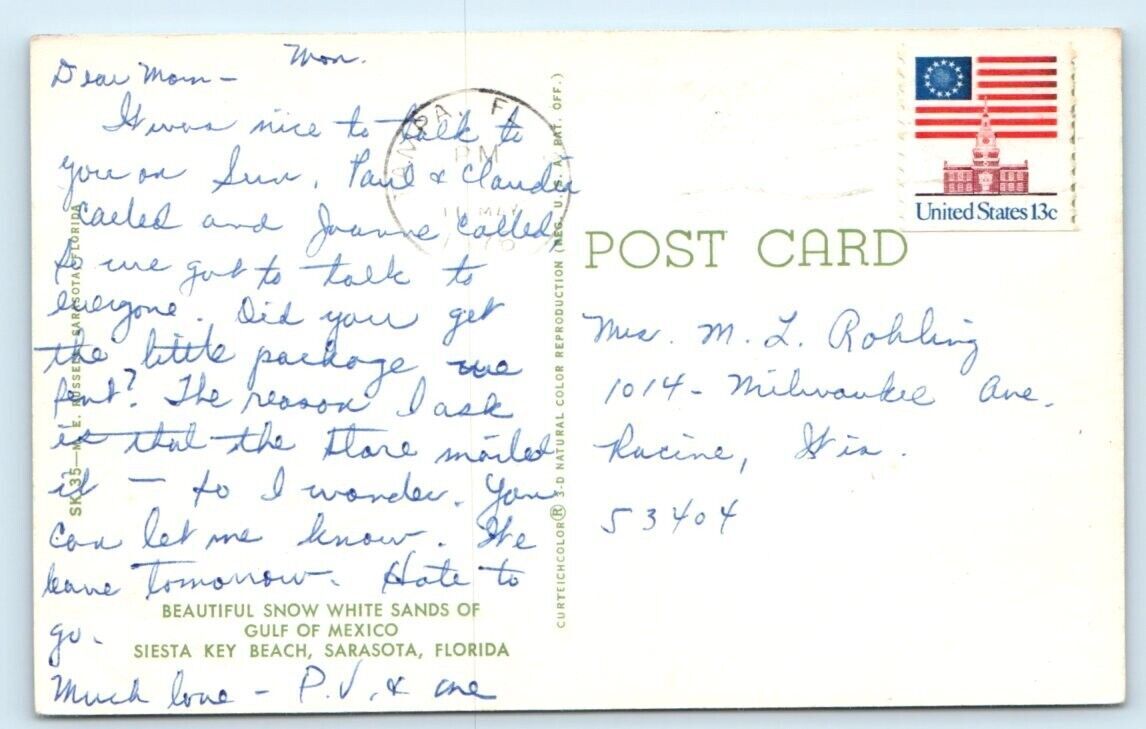 Mon.
Dear Mom -
It was nice to talk to
you on Sun. Paul & Claudia
called and Joanne called,
so we got to talk to
everyone. Did you get
the little package we
sent? The reason I ask
is that the store mailed
it — so I wonder. You
can let me know. We
leave tomorrow. Hate to
go.
Much love - P.V. & me
BEAUTIFUL SNOW WHITE SANDS OF
GULF OF MEXICO
SIESTA KEY BEACH, SARASOTA, FLORIDA
SK-35—M. E. RUSSELL, SARASOTA, FLORIDA
TAMPA, FL
PM
MAY
CURTEICHCOLOR® 3-D NATURAL COLOR REPRODUCTION (REG. U.S.A. PAT. OFF.)
United States 13c
POST CARD
Mrs. M. L. Rohling
1014 - Milwaukee Ave.
Racine, Wis.
53404